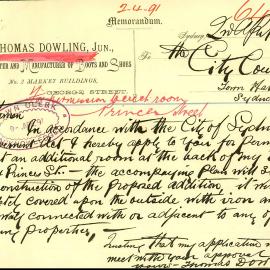 2.4.91
Memorandum.
THOMAS DOWLING, JUN.,
TER AND MANUFACTURER OF BOOTS AND SHOES
No. 2 MARKET BUILDINGS,
GEORGE STREET.
Sydney
the
City Cou
Town Ha
Sydn
Permission erect room
Princes Street
N CLERK
men
In accordance with the City of Sydn
ment Act I hereby apply to you for Perm
t an additional room at the back of my
Princes St. - the accompanying Plan will s
construction of the Proposed addition, it w
ted covered upon the outside with iron a
way connected with or adjacent to any o
n properties,
Trusting that my application
meet with your approval
Thomas Dow